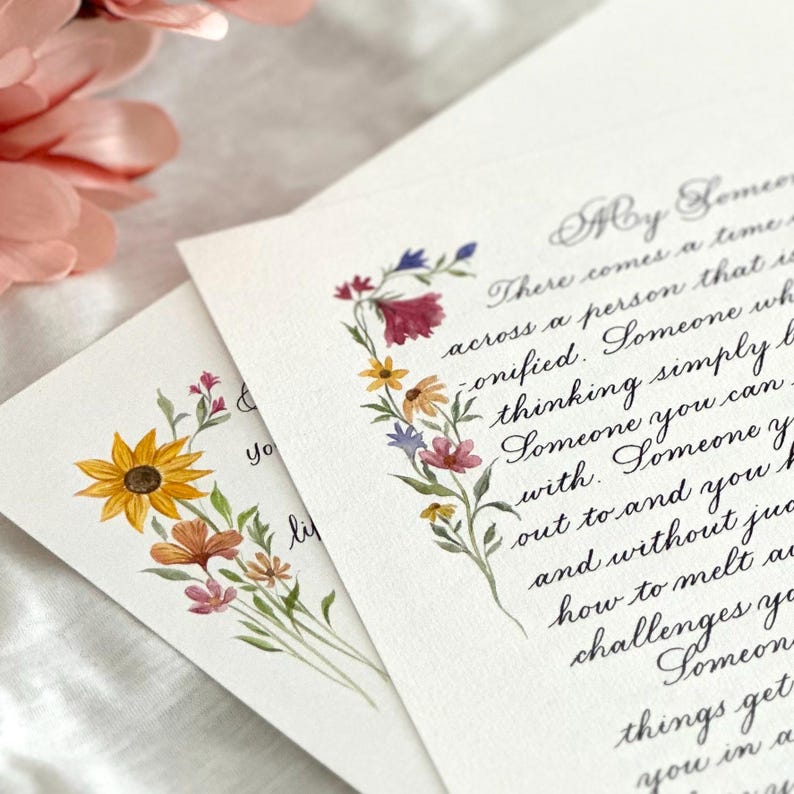 My Someon
There comes a time
across a person that is
-onified. Someone wh
thinking simply b
Someone you can
with. Someone y
out to and you h
and without jud
how to melt a
challenges yo
Someon
things get
you in a
yo
li